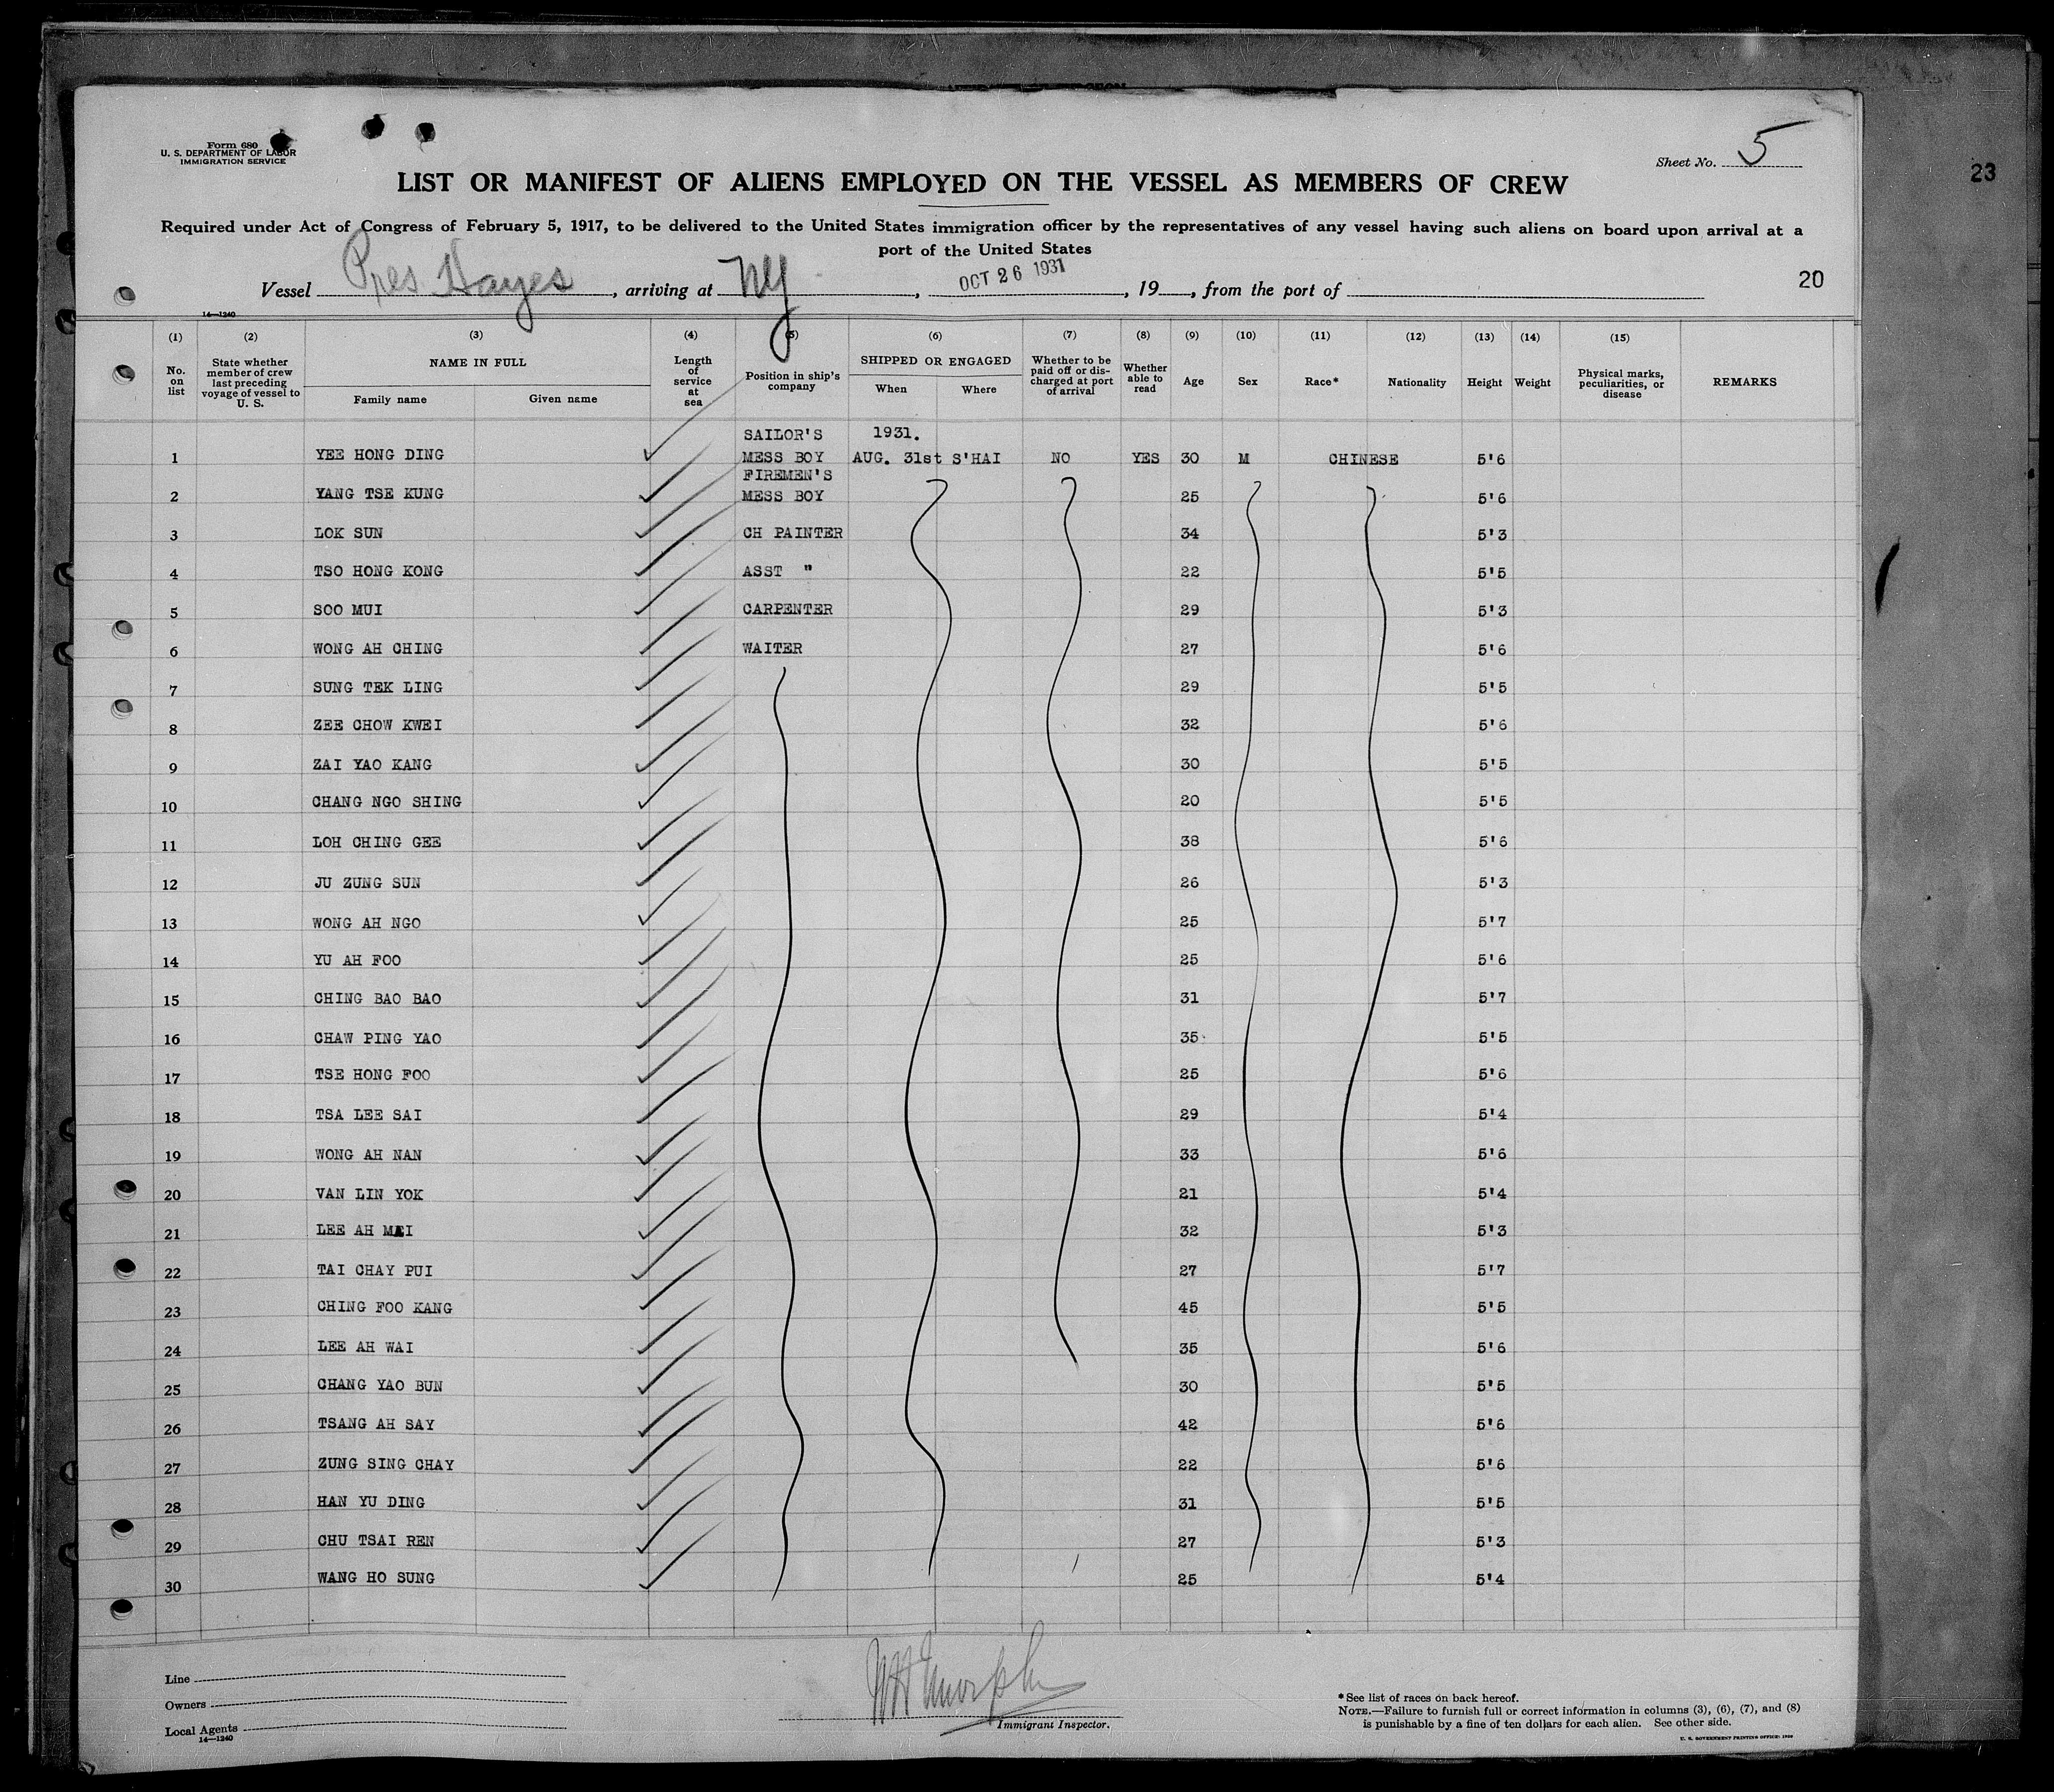 Form 680
U. S. DEPARTMENT OF LABOR
IMMIGRATION SERVICE
Sheet No. 5
23
LIST OR MANIFEST OF ALIENS EMPLOYED ON THE VESSEL AS MEMBERS OF CREW
Required under Act of Congress of February 5, 1917, to be delivered to the United States immigration officer by the representatives of any vessel having such aliens on board upon arrival at a
port of the United States
Vessel Pres Hayes, arriving at NY, OCT 26 1931, 19, from the port of
20
14—1240
(1) (2) (3) (4) (5) (6) (7) (8) (9) (10) (11) (12) (13) (14) (15)
No. on list
State whether member of crew last preceding voyage of vessel to U. S.
NAME IN FULL
Family name Given name
Length of service at sea
Position in ship's company
SHIPPED OR ENGAGED
When Where
Whether to be paid off or discharged at port of arrival
Whether able to read
Age
Sex
Race*
Nationality
Height
Weight
Physical marks, peculiarities, or disease
REMARKS
SAILOR'S 1931.
1 YEE HONG DING MESS BOY AUG. 31st S'HAI NO YES 30 M CHINESE 5'6
FIREMEN'S
2 YANG TSE KUNG MESS BOY 25 5'6
3 LOK SUN CH PAINTER 34 5'3
4 TSO HONG KONG ASST " 22 5'5
5 SOO MUI CARPENTER 29 5'3
6 WONG AH CHING WAITER 27 5'6
7 SUNG TEK LING 29 5'5
8 ZEE CHOW KWEI 32 5'6
9 ZAI YAO KANG 30 5'5
10 CHANG NGO SHING 20 5'5
11 LOH CHING GEE 38 5'6
12 JU ZUNG SUN 26 5'3
13 WONG AH NGO 25 5'7
14 YU AH FOO 25 5'6
15 CHING BAO BAO 31 5'7
16 CHAW PING YAO 35 5'5
17 TSE HONG FOO 25 5'6
18 TSA LEE SAI 29 5'4
19 WONG AH NAN 33 5'6
20 VAN LIN YOK 21 5'4
21 LEE AH 32 5'3
22 TAI CHAY PUI 27 5'7
23 CHING FOO KANG 45 5'5
24 LEE AH WAI 35 5'6
25 CHANG YAO BUN 30 5'5
26 TSANG AH SAY 42 5'6
27 ZUNG SING CHAY 22 5'6
28 HAN YU DING 31 5'5
29 CHU TSAI REN 27 5'3
30 WANG HO SUNG 25 5'4
Line
Owners
Local Agents
14—1240
Immigrant Inspector.
*See list of races on back hereof.
NOTE.—Failure to furnish full or correct information in columns (3), (6), (7), and (8)
is punishable by a fine of ten dollars for each alien. See other side.